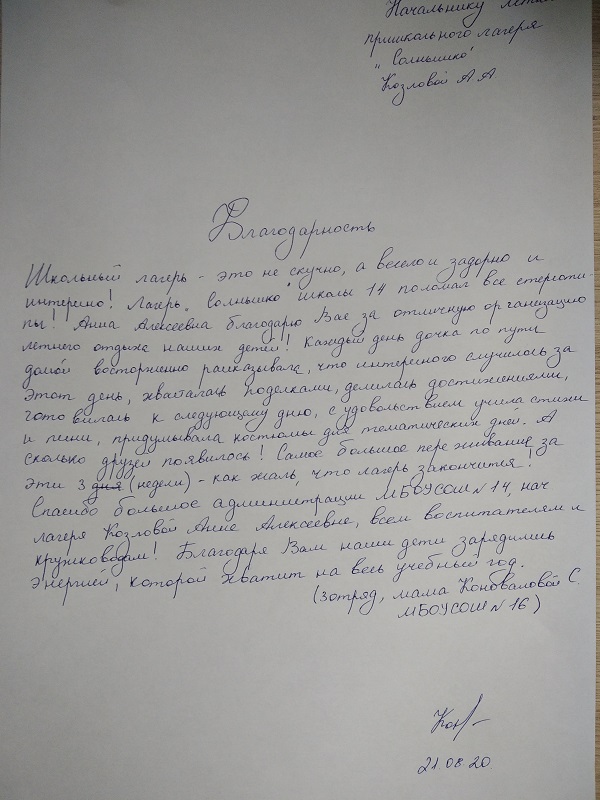 Начальнику летнего
пришкольного лагеря
"Солнышко"
Козловой А А
Благодарность
Школьный лагерь - это не скучно, а весело и задорно и
интересно! Лагерь "Солнышко" школы 14 поломал все стереоти-
пы! Анна Алексеевна благодарю Вас за отличную организацию
летнего отдыха наших детей!! Каждый день дочка по пути
домой восторженно рассказывала, что интересного случилось за
этот день, хвасталась поделками, делилась достижениями,
готовилась к следующему дню, с удовольствием учила стихи
и песни, придумывала костюмы для тематических дней. А
сколько друзей появилось! Самое большое переживание за
эти 3 дня (недели) - как жаль, что лагерь закончится!
Спасибо большое администрации МБОУСОШ N 14, нач
лагеря Козловой Анне Алексеевне, всем воспитателям и
кружководам! Благодаря Вам наши дети зарядились
энергией, которой хватит на весь учебный год.
(3 отряд, мама Коноваловой С.
МБОУСОШ N 16)
Кон
21.08.20